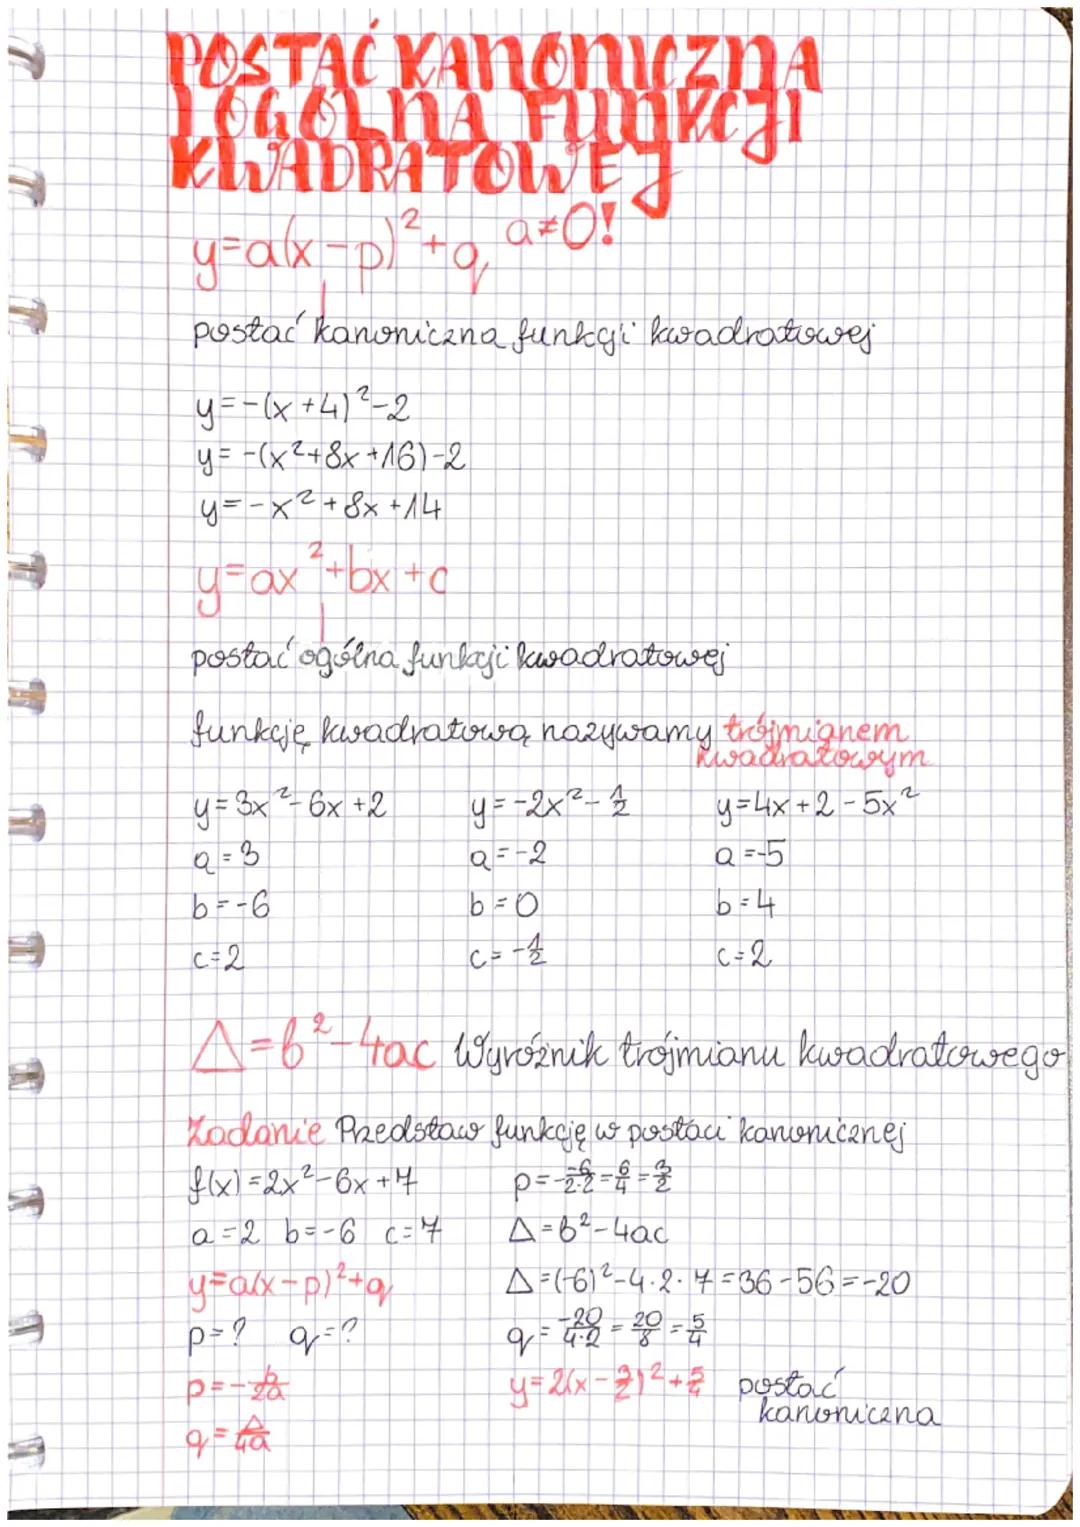 POSTAĆ KANONICZNA
I OGÓLNA FUNKCJI
KWADRATOWEJ
y=a(x-p)²+q, a≠0!
postać kanoniczna funkcji kwadratowej
y=-(x+4)²-2
y=-(x²+8x+16)-2
y=-x²+8x+14
y=ax²+bx+c
postać ogólna funkcji kwadratowej
funkcję kwadratową nazywamy trójmianem
kwadratowym
y=3x²-6x+2 y=-2x²-1/2 y=4x+2-5x²
a=3 a=-2 a=-5
b=-6 b=0 b=4
c=2 c=-1/2 c=2
Δ=b²-4ac Wyróżnik trójmianu kwadratowego
Zadanie Przedstaw funkcję w postaci kanonicznej
f(x)=2x²-6x+7 p=-\frac{-6}{2·2}=6/4=3/2
a=2 b=-6 c=7 Δ=b²-4ac
y=a(x-p)²+q Δ=(-6)²-4·2·7=36-56=-20
p=? q=? q=\frac{-20}{4·2}=20/8=5/4
p=-\frac{b}{2a} y=2(x-3/2)²+5/2 postać
kanoniczna
q=\frac{Δ}{4a}